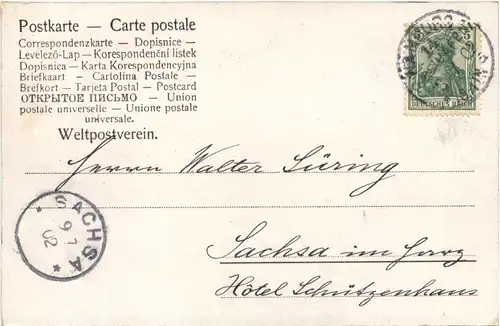 Postkarte — Carte postale
Correspondenzkarte — Dopisnice —
Levelező-Lap — Korespondenční listek
Dopisnica — Karta Korespondencyjna
Briefkaart — Cartolina Postale —
Brefkort — Tarjeta Postal — Postcard
ОТКРЫТОЕ ПИСЬМО — Union
postale universelle — Unione postale
universale.
Weltpostverein.
DEUTSCHES REICH
Herrn Walter Süring
SACHSA
9 7
02
Sachsa im Harz
Hôtel Schützenhaus